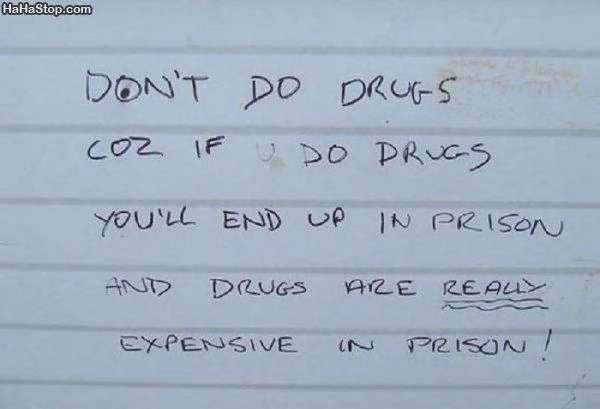 HaHaStop.com
DON'T DO DRUGS
COZ IF U DO DRUGS
YOU'LL END UP IN PRISON
AND DRUGS ARE REALLY
EXPENSIVE IN PRISON!